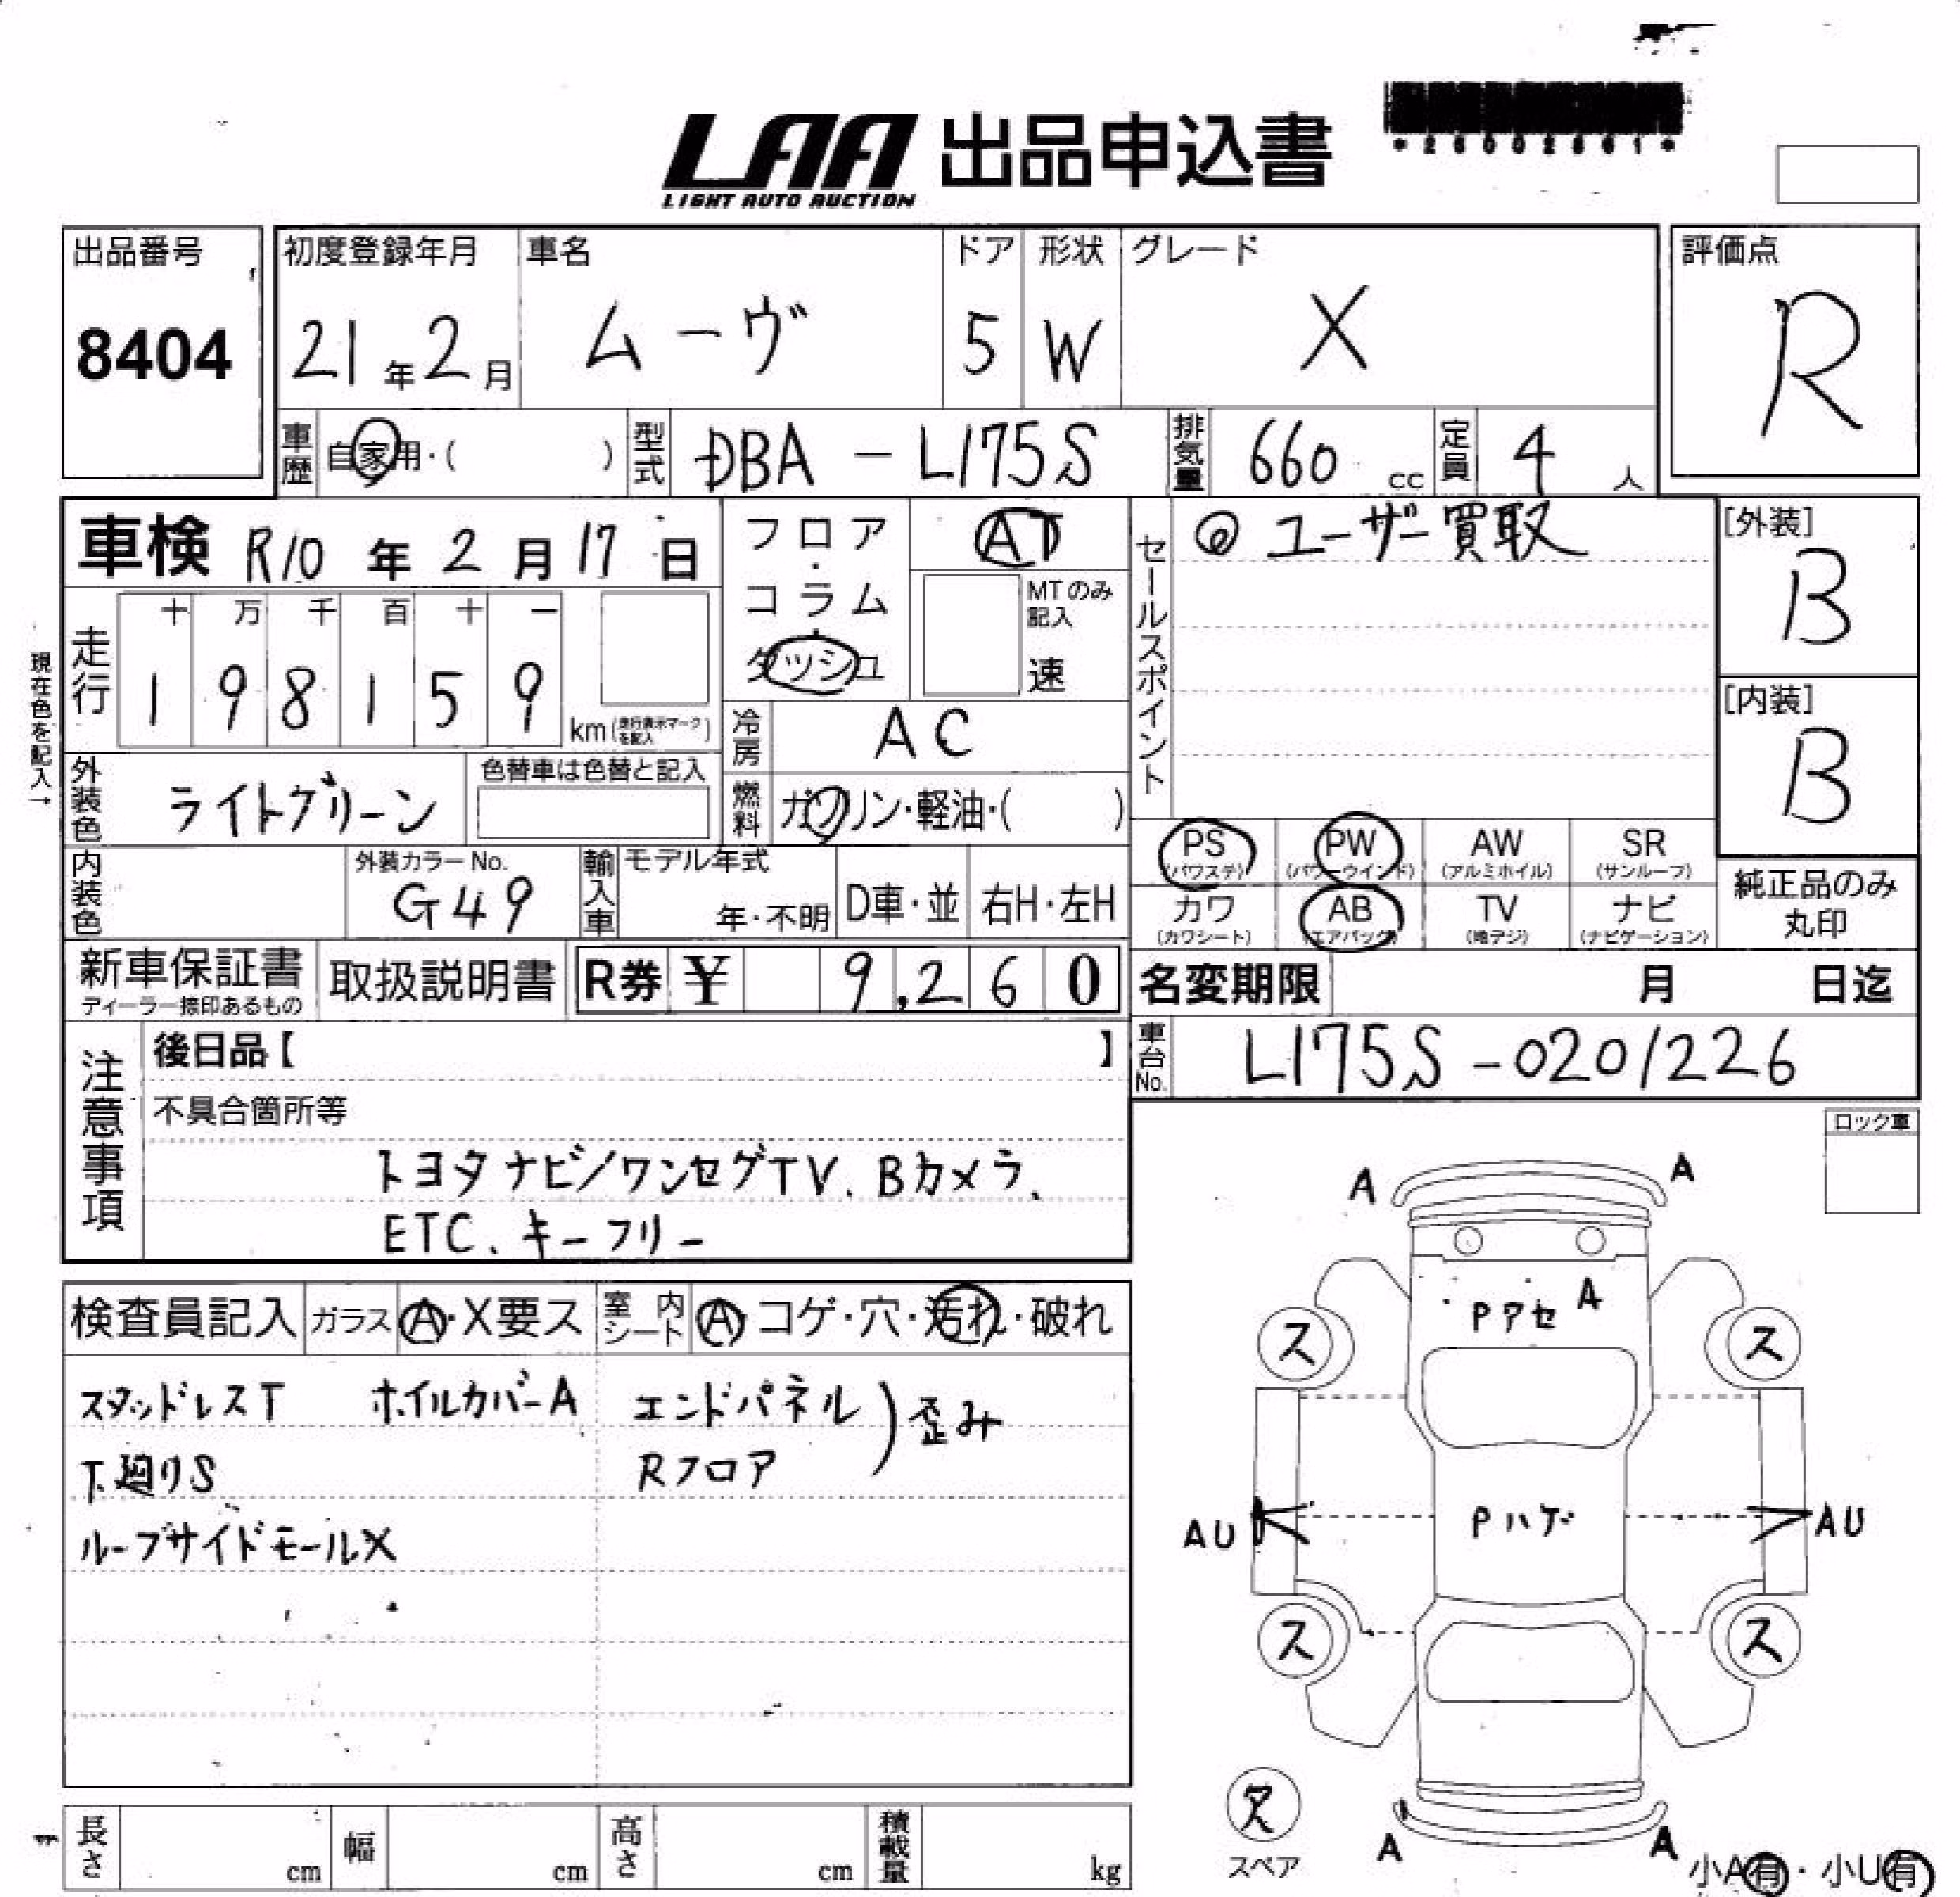 LAA 出品申込書
LIGHT AUTO AUCTION
出品番号 初度登録年月 車名 ドア 形状 グレード 評価点
8404 21年2月 ムーヴ 5 W X R
車歴 自家用・( ) 型式 DBA-L175S 排気量 660 cc 定員 4 人
車検 R10年2月17日 フロア・コラム・ダッシュ AT
MTのみ記入 速
セールスポイント ◎ユーザー買取
[外装] B
[内装] B
現在色を記入→
走行 十 万 千 百 十 一
1 9 8 1 5 9 km (走行表示マークを記入)
冷房 AC
外装色 ライトグリーン 色替車は色替と記入
燃料 ガソリン・軽油・( )
PS (パワステ) PW (パワーウインド) AW (アルミホイル) SR (サンルーフ)
カワ (カワシート) AB (エアバック) TV (地デジ) ナビ (ナビゲーション)
純正品のみ丸印
内装色 外装カラーNo. G49 輸入車 モデル年式 年・不明 D車・並 右H・左H
新車保証書 ディーラー捺印あるもの 取扱説明書 R券 ¥ 9,260
名変期限 月 日迄
車台No. L175S-0201226
注意事項 後日品【 】
不具合箇所等
トヨタナビ/ワンセグTV、Bカメラ、
ETC、キーフリー
ロック車
検査員記入 ガラス A・X要ス 室内シート A コゲ・穴・汚れ・破れ
スタッドレスT ホイルカバーA エンドパネル
Rフロア ) 歪み
下廻りS
ルーフサイドモールX
A A
Pアセ A
ス ス
AU Pハゲ AU
ス ス
スペア
A A
小A有・小U有
長さ cm 幅 cm 高さ cm 積載量 kg